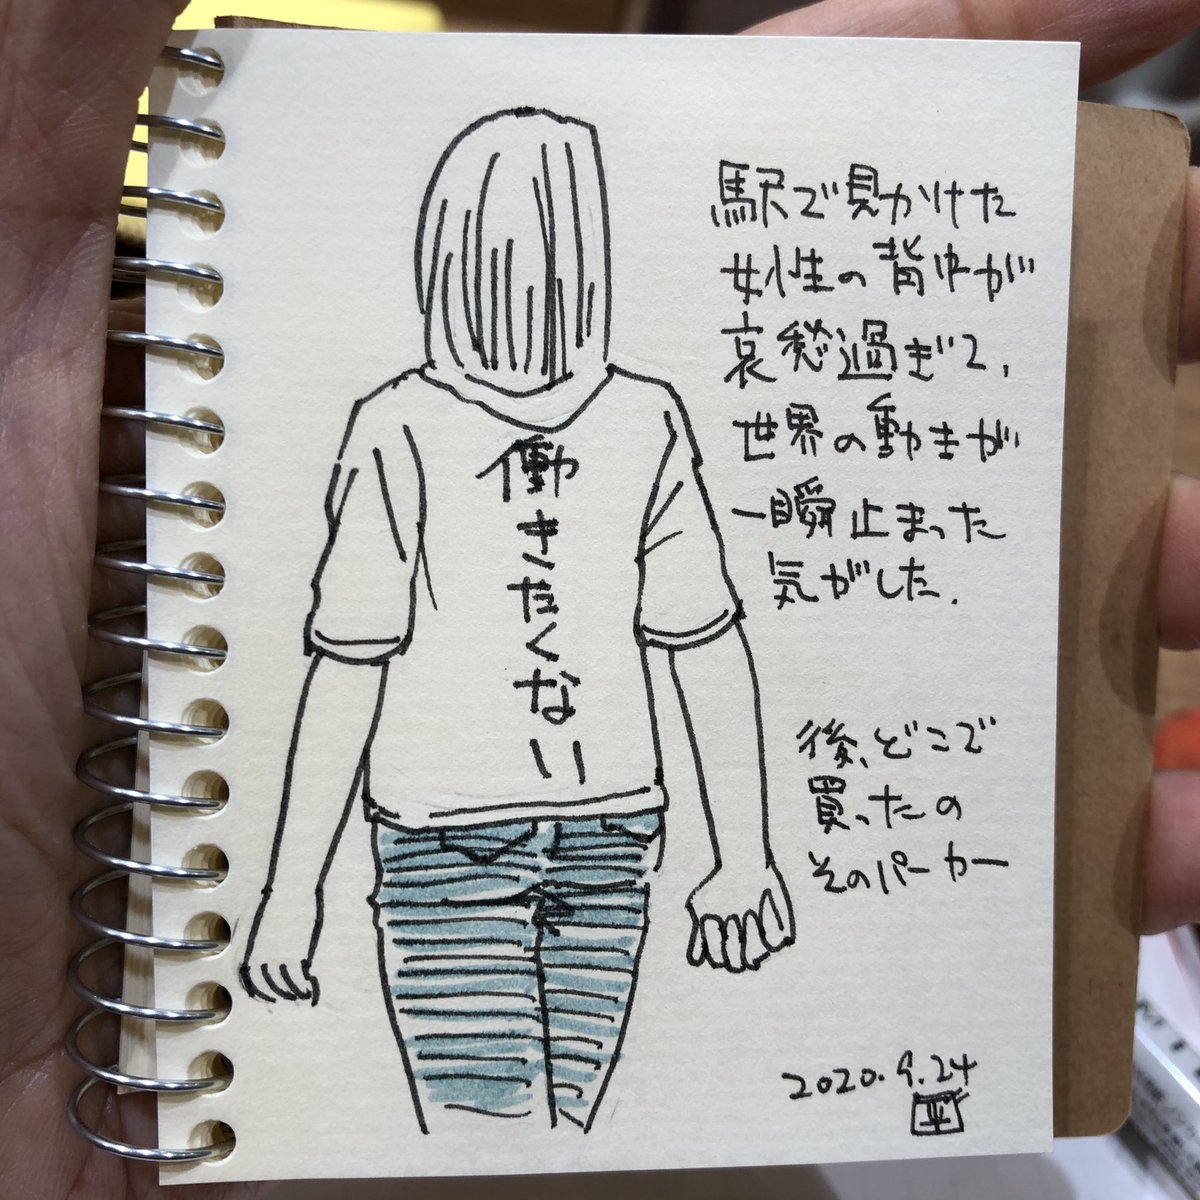 駅で見かけた
女性の背中が
哀愁過ぎて、
世界の動きが
一瞬止まった
気がした.
働きたくない
後、どこで
買ったの
そのパーカー
2020.9.24